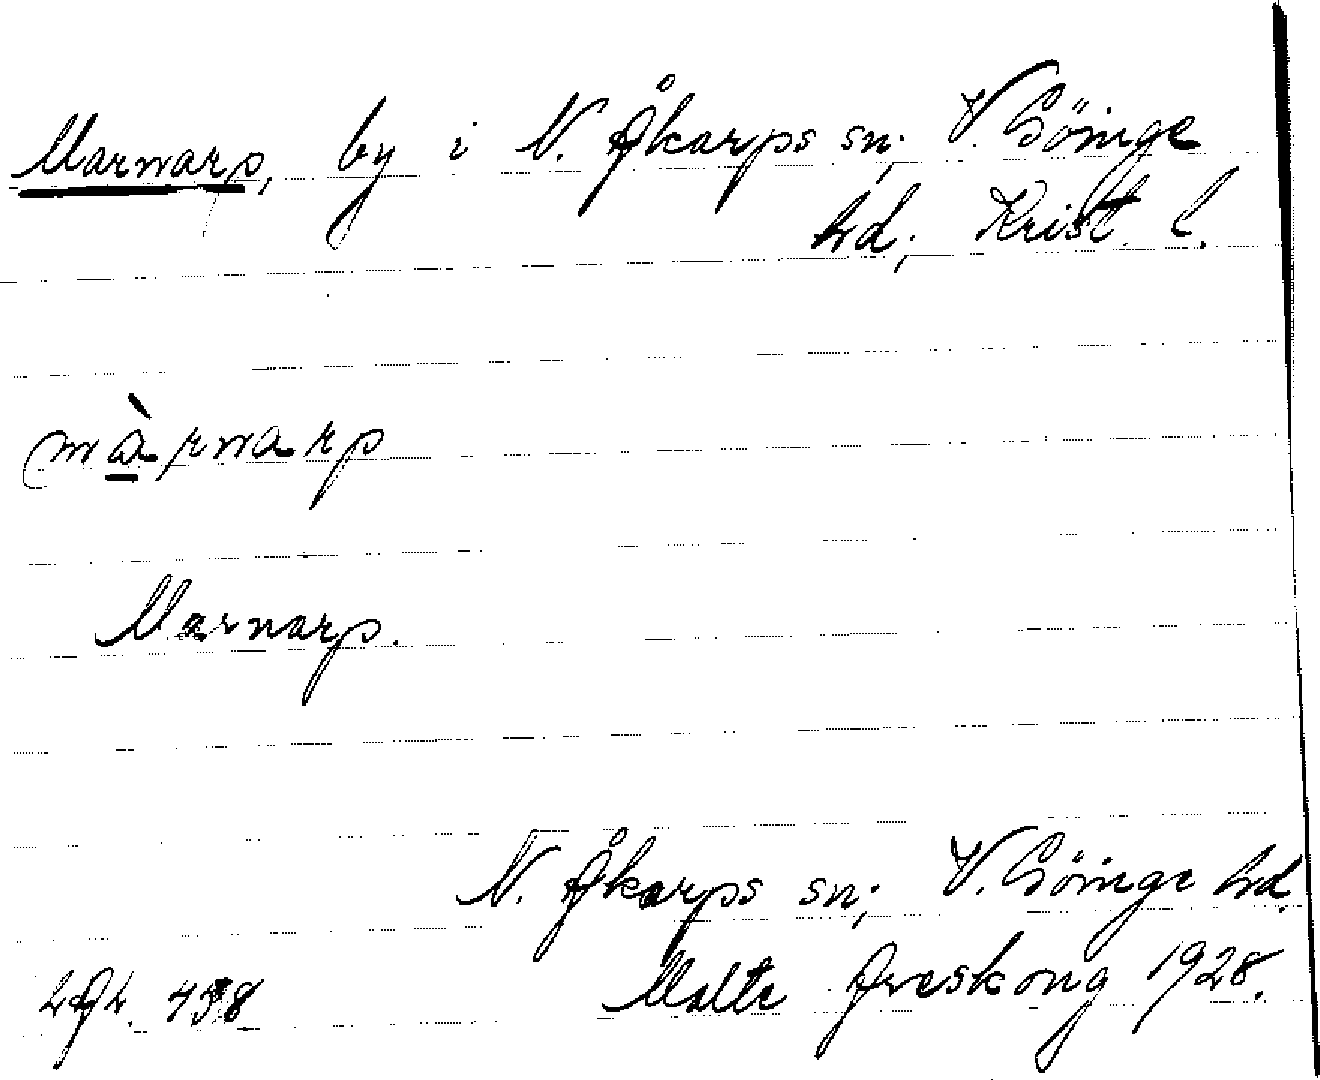 Marnarp, by i N. Åkarps sn; V. Göinge
hd; Krist. l.
màrnarp
Marnarp.
N. Åkarps sn; V. Göinge hd.
Malte Areskoug 1928.